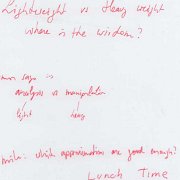 Lightweight vs Heavy weight
where is the wisdom?
says is
analysis vs manipulation
light heavy
which approximations are good enough?
Lunch Time